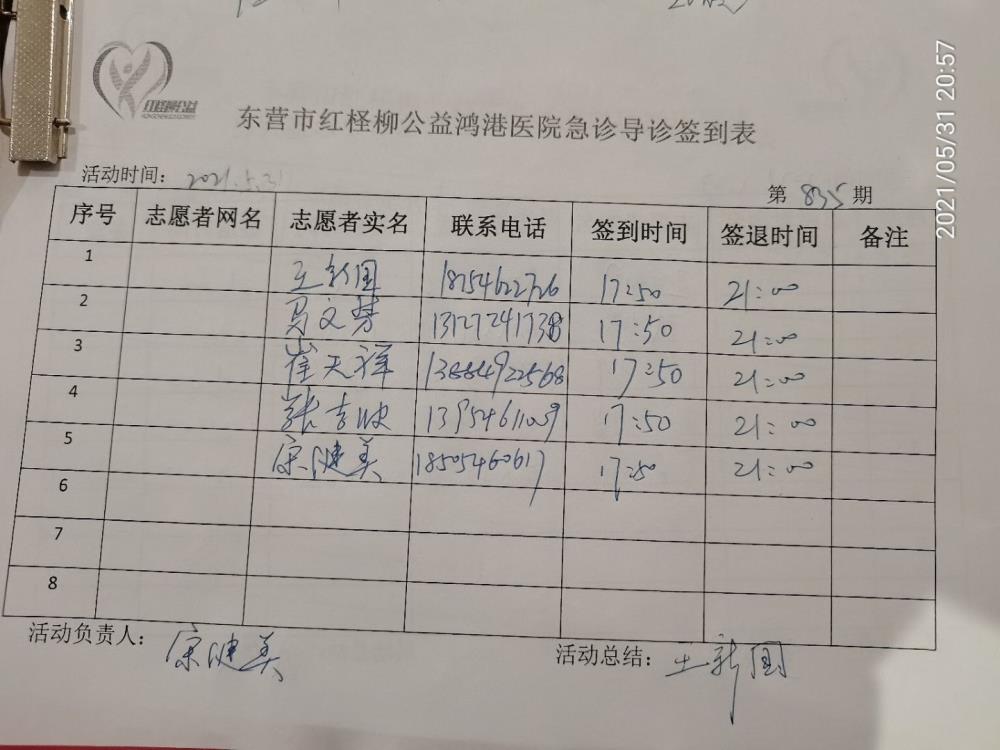 红柽柳公益
东营市红柽柳公益鸿港医院急诊导诊签到表
活动时间： 2021.5.31
第 835 期
序号 志愿者网名 志愿者实名 联系电话 签到时间 签退时间 备注
1 王新国 18754622726 17:50 21:00
2 马文芳 13127241738 17:50 21:00
3 崔天祥 13884922568 17:50 21:00
4 张吉波 13954611009 17:50 21:00
5 宗健美 18505460617 17:50 21:00
6
7
8
活动负责人： 宗健美
活动总结： 王新国
2021/05/31 20:57